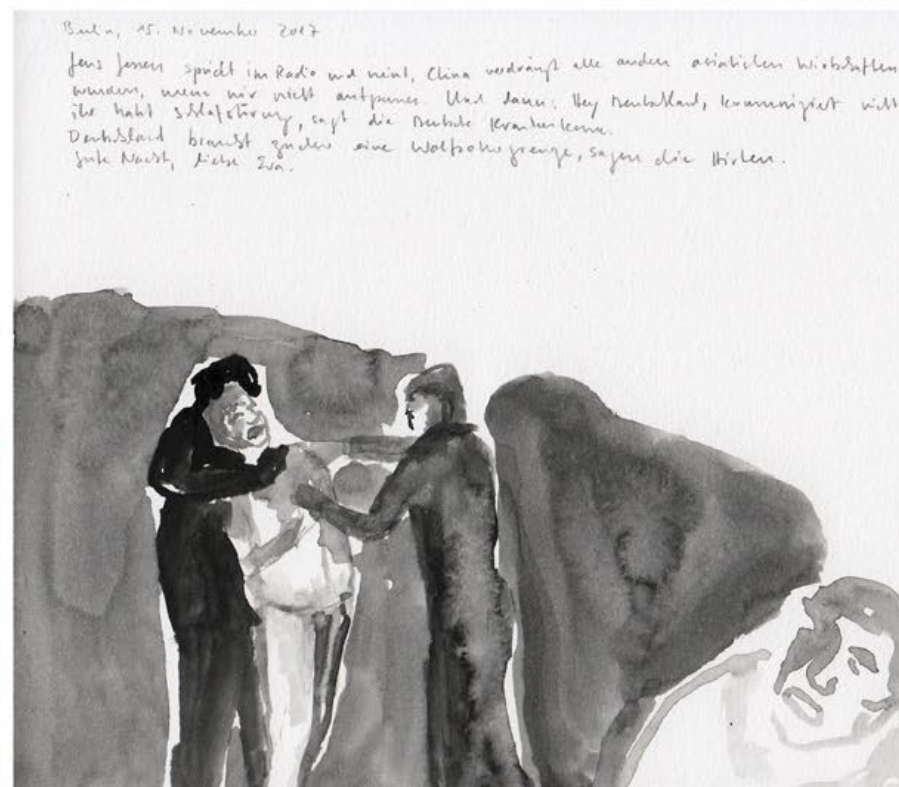 Berlin, 15. November 2017
Jens Jensen spricht im Radio und meint, China verdrängt alle andern asiatischen Wirtschaften
wenn wir nicht aufpassen. Und dann: Hey Deutschland,
ihr habt Schlafstörung, sagt die Deutsche Krankenkasse.
Deutschland braucht eine Wolfsobergrenze, sagen die Hirten.
Gute Nacht, liebe Eva.